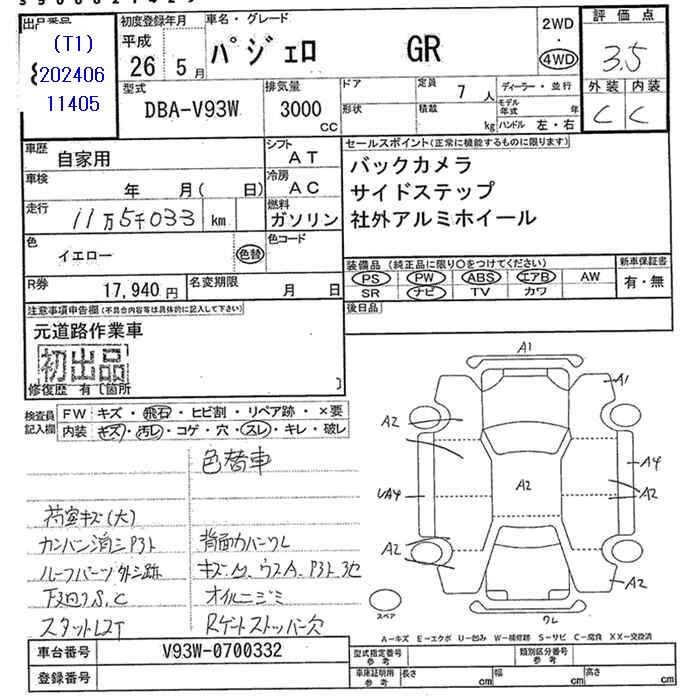 出品番号
(T1)
202406
11405
初度登録年月
平成
26年 5月
車名・グレード
パジェロ GR
2WD
・
4WD
評価点
3.5
外装 内装
C C
型式
DBA-V93W
排気量
3000
CC
ドア
形状
定員
7人
積載
kg
ディーラー・並行
モデル年式 年
ハンドル 左・右
車歴
自家用
シフト
AT
車検
年 月( 日)
冷房
AC
走行
11万5千033 km
燃料
ガソリン
色
イエロー
色替
色コード
R券
17,940円
名変期限
月 日
セールスポイント(正常に機能するものに限ります)
バックカメラ
サイドステップ
社外アルミホイール
装備品(純正品に限り○をつけてください)
PS PW ABS エアB AW
SR ナビ TV カワ
新車保証書
有・無
後日品
注意事項申告欄(不具合内容等は具体的に記入して下さい)
元道路作業車
初出品
修復歴 有〔箇所 〕
検査員
記入欄
FW キズ・飛石・ヒビ割・リペア跡・×要
内装 キズ・汚レ・コゲ・穴・スレ・キレ・破レ
色替車
荷室キズ(大)
カンバン消シP3ト 背面カバーワレ
ルーフパーツ外シ跡
下回りS、C オイルニジミ
スタットレスT Rゲートストッパー欠
A1
A1
A2
A4
A2
A2
UA4
A2
A2
スペア
ワレ
A-キズ E-エクボ U-凹み W-補修跡 S-サビ C-腐食 XX-交換済
車台番号
V93W-0700332
登録番号
型式指定番号
参考
類別区分番号
参考
車庫証明用
参考
長さ cm
幅 cm
高さ cm